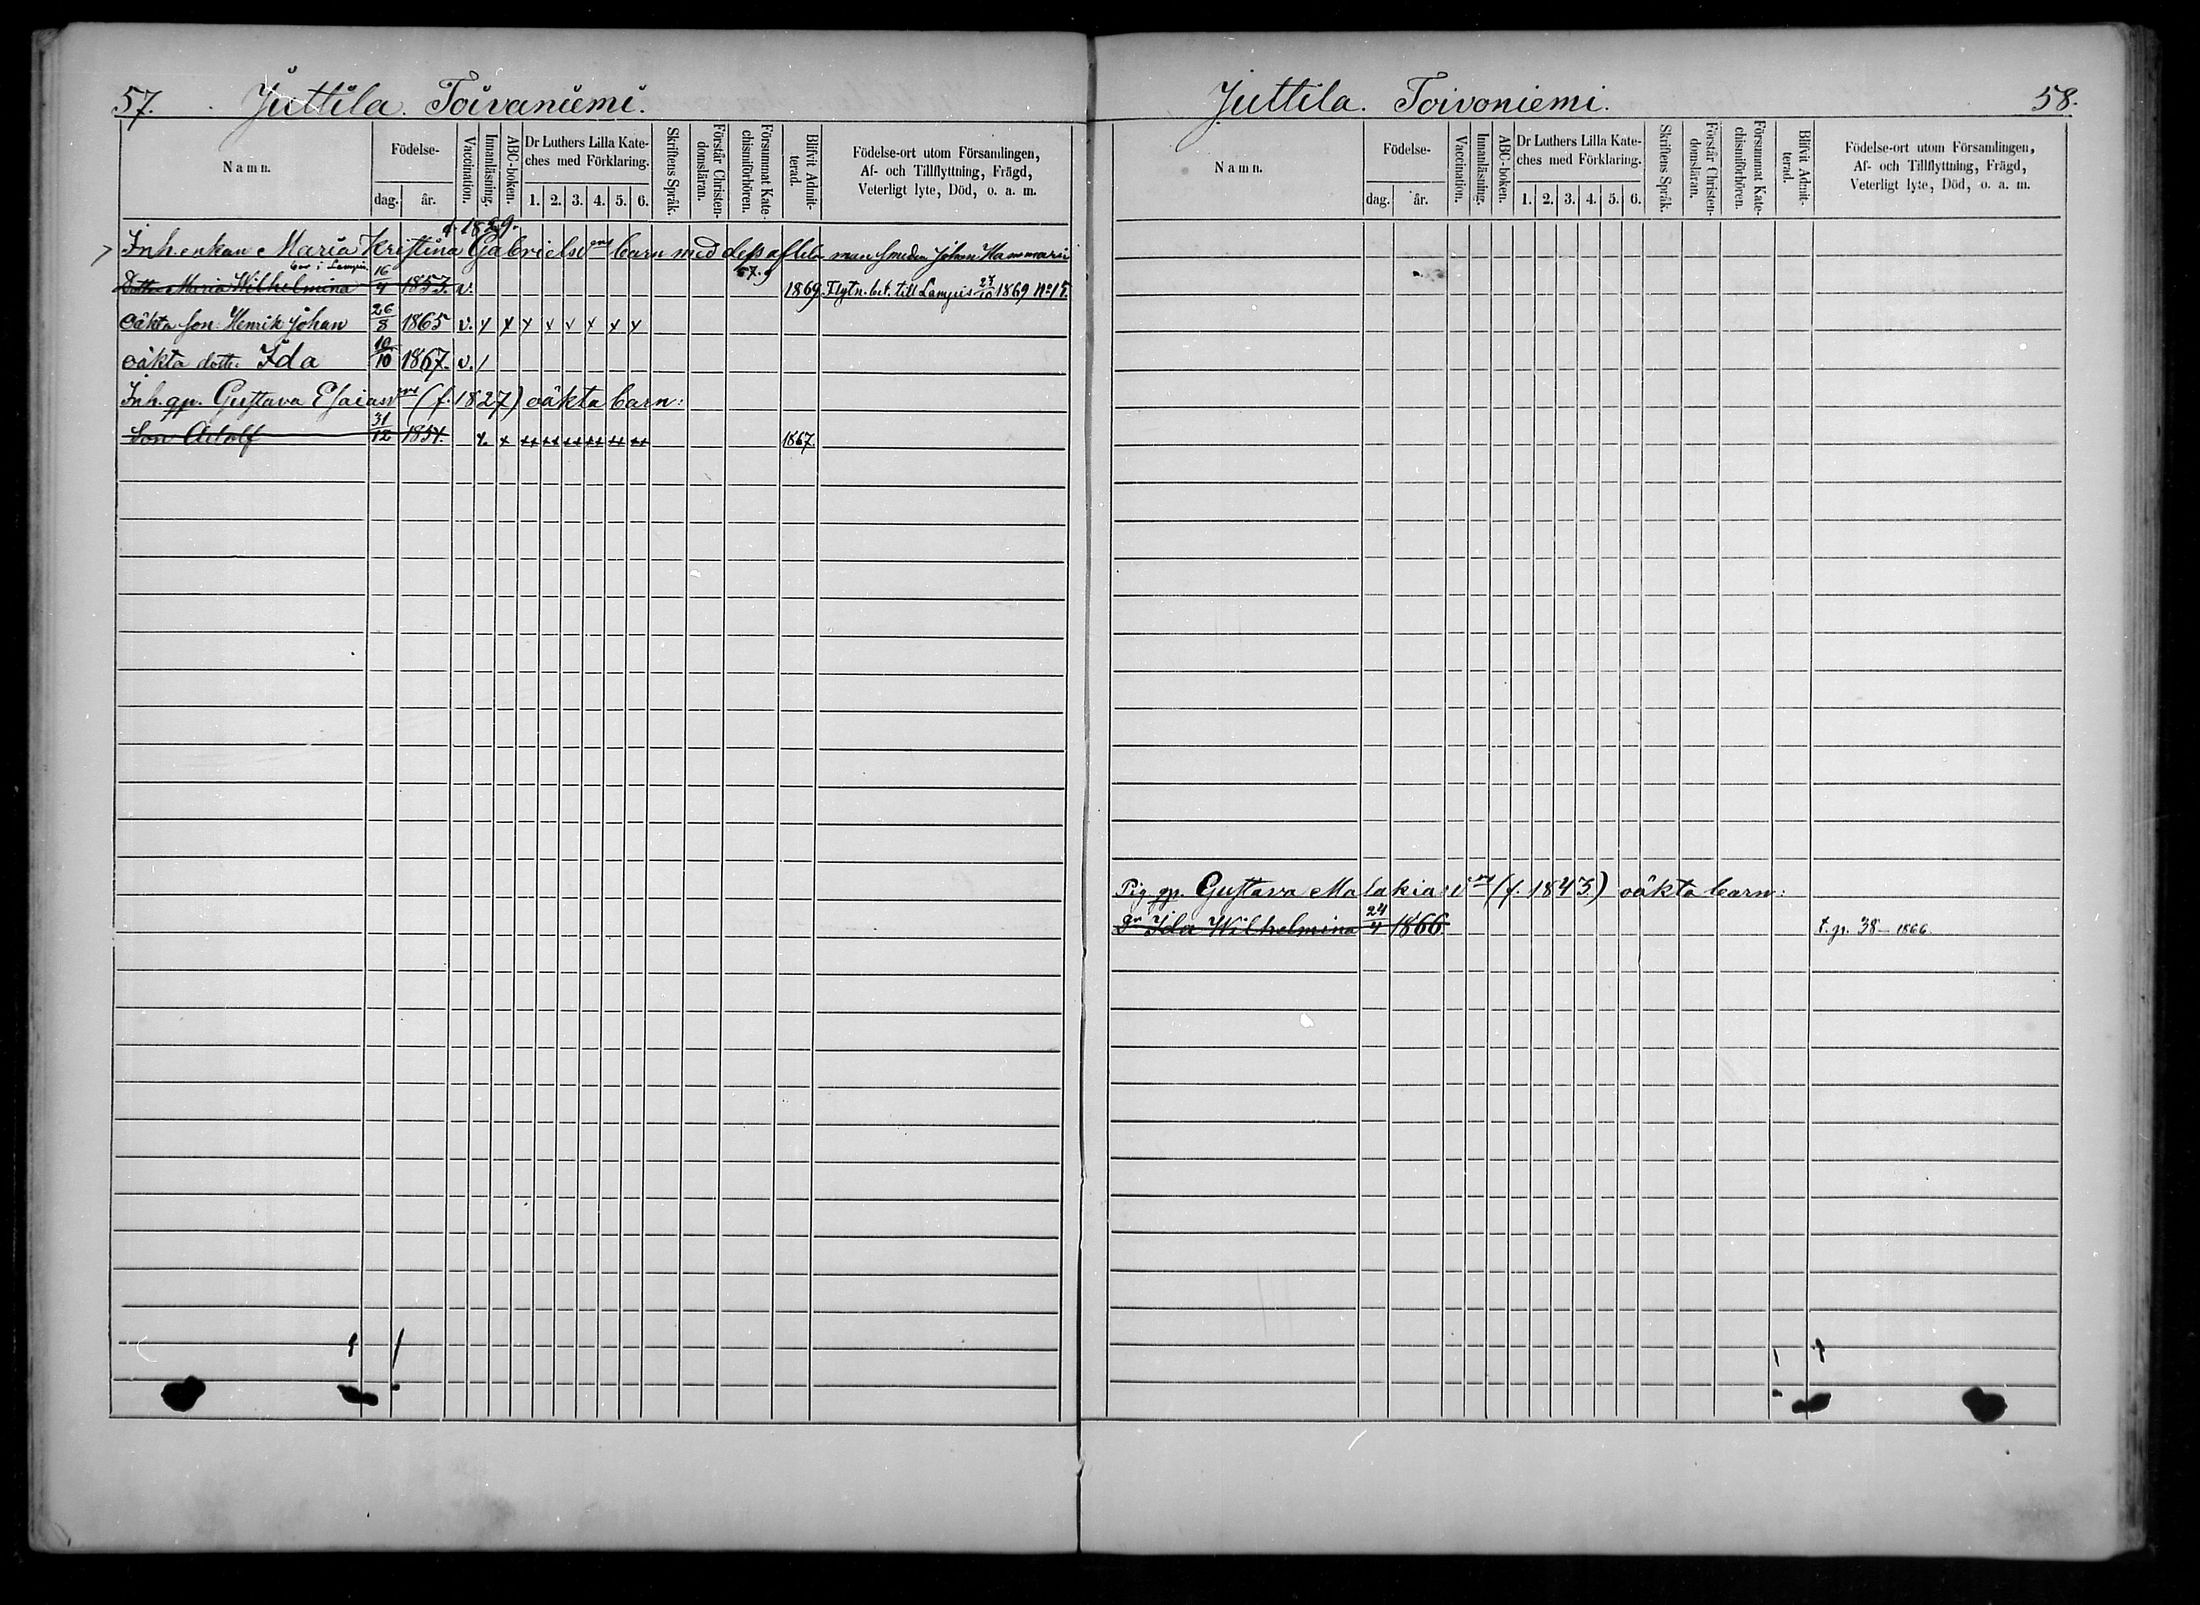 57. Juttila. Toivaniemi.
Namn.
Födelse-
dag. år.
Vaccination.
Innanläsning.
ABC-boken.
Dr Luthers Lilla Kate-
ches med Förklaring.
1. 2. 3. 4. 5. 6.
Skriftens Språk.
Förstår Christen-
domsläran.
Försummat Kate-
chismiförhören.
Blifvit Admit-
terad.
Födelse-ort utom Församlingen,
Af- och Tillflyttning, Frägd,
Veterligt lyte, Död, o. a. m.
f. 1829.
Inh. enkan Maria Kristina Gabrielsdr barn med dess aflidn man smeden Johan Hammarin
bor i Lampis
67.
Dotter Maria Wilhelmina 16/4 1853. v. 1869 Flytn. bet. till Lampis 27/10 1869 No 15.
oäkta son Henrik Johan 26/8 1865 v. x x x x x x x x
oäkta dotter Ida 10/10 1867. v. /
Inh. qp. Gustava Esaiasdr (f. 1827) oäkta barn:
Son Adolf 31/12 1851. x x xx xx xx xx xx xx 1867.
Juttila. Toivoniemi. 58.
Namn.
Födelse-
dag. år.
Vaccination.
Innanläsning.
ABC-boken.
Dr Luthers Lilla Kate-
ches med Förklaring.
1. 2. 3. 4. 5. 6.
Skriftens Språk.
Förstår Christen-
domsläran.
Försummat Kate-
chismiförhören.
Blifvit Admit-
terad.
Födelse-ort utom Församlingen,
Af- och Tillflyttning, Frägd,
Veterligt lyte, Död, o. a. m.
Pig. qp. Gustava Malakiasdr (f. 1843) oäkta barn:
Dr Ida Wilhelmina 24/4 1866. t. p. 38 - 1866.